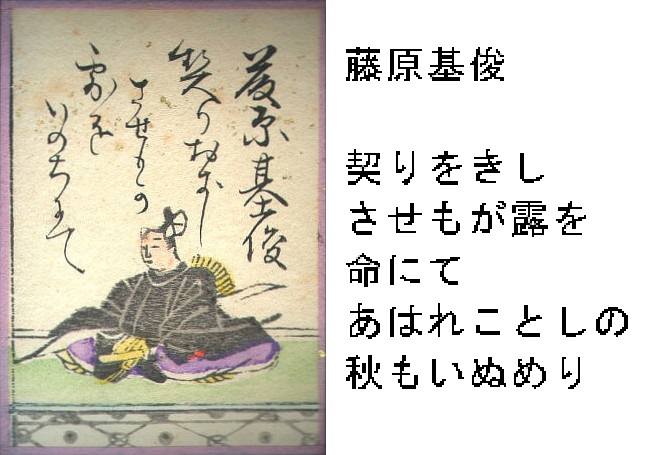 藤原基俊
契りおきし
させもが
露を
いのちにて
藤原基俊
契りをきし
さセもが露を
命にて
あはれことしの
秋もいぬめり